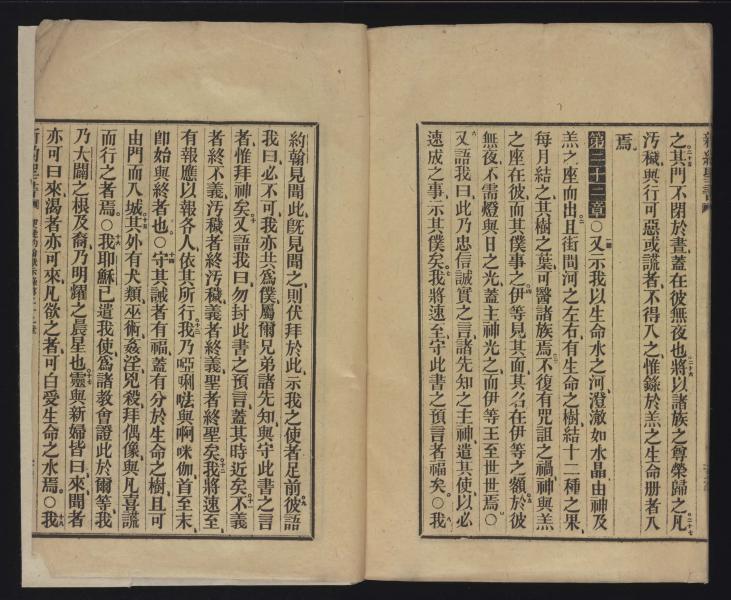 之其門不閉於晝蓋在彼無夜也將以諸族之尊榮歸之凡
汚穢與行可惡或謊者不得入之惟錄於羔之生命册者入
焉
第二十二章〇又示我以生命水之河澄澈如水晶由神及
羔之座而出且街間河之左右有生命之樹結十二種之果
每月結之其樹之葉可醫諸族焉不復有咒詛之禍神與羔
之座在彼而其僕事之伊等見其面而其名在伊等之額於彼
無夜不需燈與日之光蓋主神光之而伊等王至世世焉〇
又語我曰此乃忠信誠實之言諸先知之主神遣其使以必
速成之事示其僕矣我將速至守此書之預言者福矣〇我
約翰見聞此旣見聞之則伏拜於此示我之使者足前彼語
我曰必不可我亦共爲僕屬爾兄弟諸先知與守此書之言
者惟拜神矣又語我曰勿封此書之預言蓋其時近矣不義
者終不義汚穢者終汚穢義者終義聖者終聖矣我將速至
有報應以報各人依其所行我乃啞唎𠵽與啊咪伽首至末
卽始與終者也〇守其誡者有福蓋有分於生命之樹且可
由門而入城其外有犬類巫術姦淫兇殺拜偶像與凡喜謊
而行之者焉〇我耶穌已遣我使爲諸教會證此於爾等我
乃大闢之根及裔乃明耀之晨星也靈與新婦皆曰來聞者
亦可曰來渴者亦可來凡欲之者可白愛生命之水焉〇我